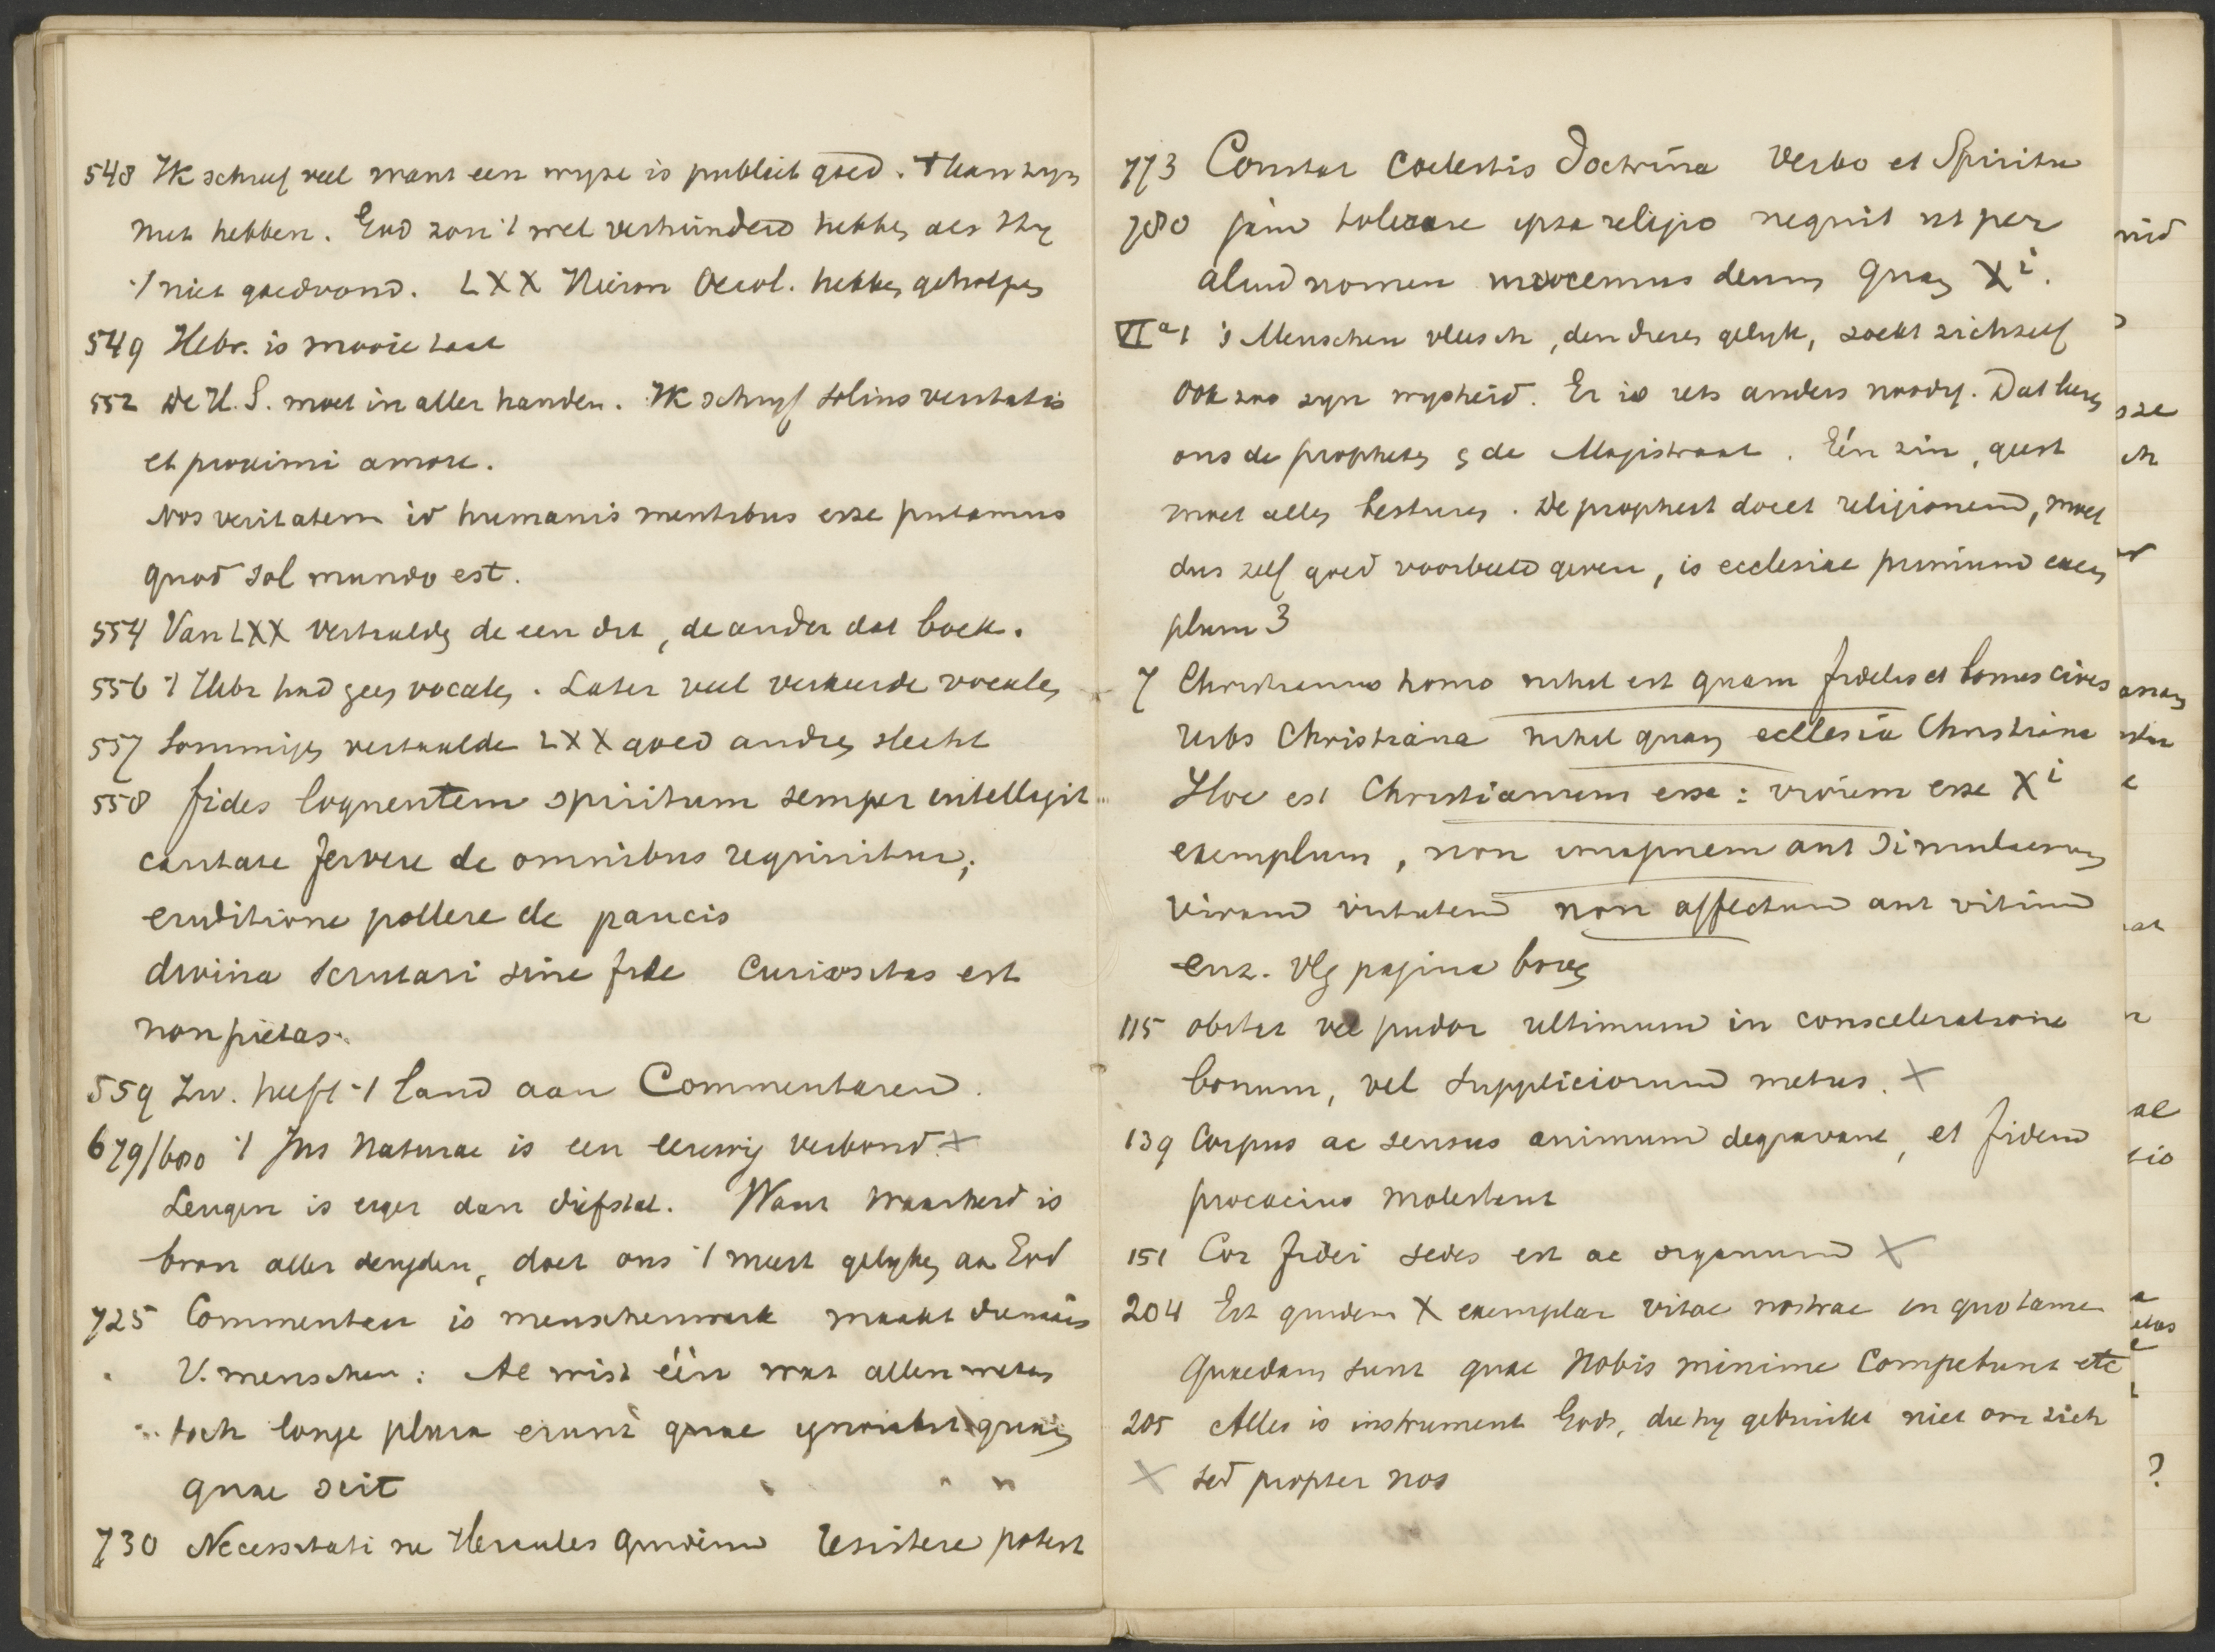 548 Ik schreef veel want een wyze is publiek goed. Men zyn
met hebben. God zou 't wel verhinderd hebben als Hy
't niet goedvond. LXX Hieron Oecol. hebben geholpen
549 Hebr. is mooie taal
552 De H. S. moet in aller handen. Ik schryf solius veritatis
et proximi amore.
Nos veritatem id humanis mentibus esse putamus
quod sol mundo est.
554 Van LXX vertaalde de een dit, de ander dat boek.
556 't Hebr had geen vocalen. Later veel verkeerde vocalen
557 Sommigen vertaalde LXX goed andren slecht
558 fides loquentem spiritum semper intelligit
caritate fervere de omnibus requiritur;
eruditione pollere de paucis
divina scrutari sine fide curiositas est
non pietas.
559 Zw. heeft 't land aan Commentaren.
679/680 't Jus Naturae is een eeuwig verbond. X
Leugen is erger dan diefstal. Want waarheid is
bron aller deugden, doet ons 't meest gelyken aan God
725 Commenten is menschenwerk maakt
v. menschen: Al wist één wat allen weten
toch longe plura erunt quae ignorabit quam
quae scit
730 Necessitati ne Hercules quidem resistere potest
773 Constat coelestis doctrina verbo et Spiritu
780 jam tolerare ipsa religio nequit ut per
aliud nomen invocemus deum quam Xi.
VIa 1 's Menschen vleesch, den dieren gelyk, zoekt zichzelf
ook zoo zyn wysheid. Er is iets anders noodig. Dat leeren
ons de propheten & de Magistraat. Eén zin, geest
moet allen besturen. De propheet docet religionem, moet
dus zelf goed voorbeeld geven, is ecclesiae primum exem
plum 3
7 Christianus homo nihil est quam fidelis et bonus civis
urbs Christiana nihil quam ecclesia Christiana
Hoc est Christianum esse: vivum esse Xi
exemplum, non imaginem aut simulacrum
vivam virtutem non affectum aut vitium
enz. vlg pagina boven
115 obstet vel pudor ultimum in consceleratione
bonum, vel suppliciorum metus. X
139 Corpus ac sensus animum degravant, et fidem
procacius molestant
151 Cor fidei sedes est ac organum X
204 Est quidem X exemplar vitae nostrae in quo tamen
quaedam sunt quae nobis minime competunt etc
205 Alles is instrument Gods, die hy gebruikt niet om zich
X sed propter nos